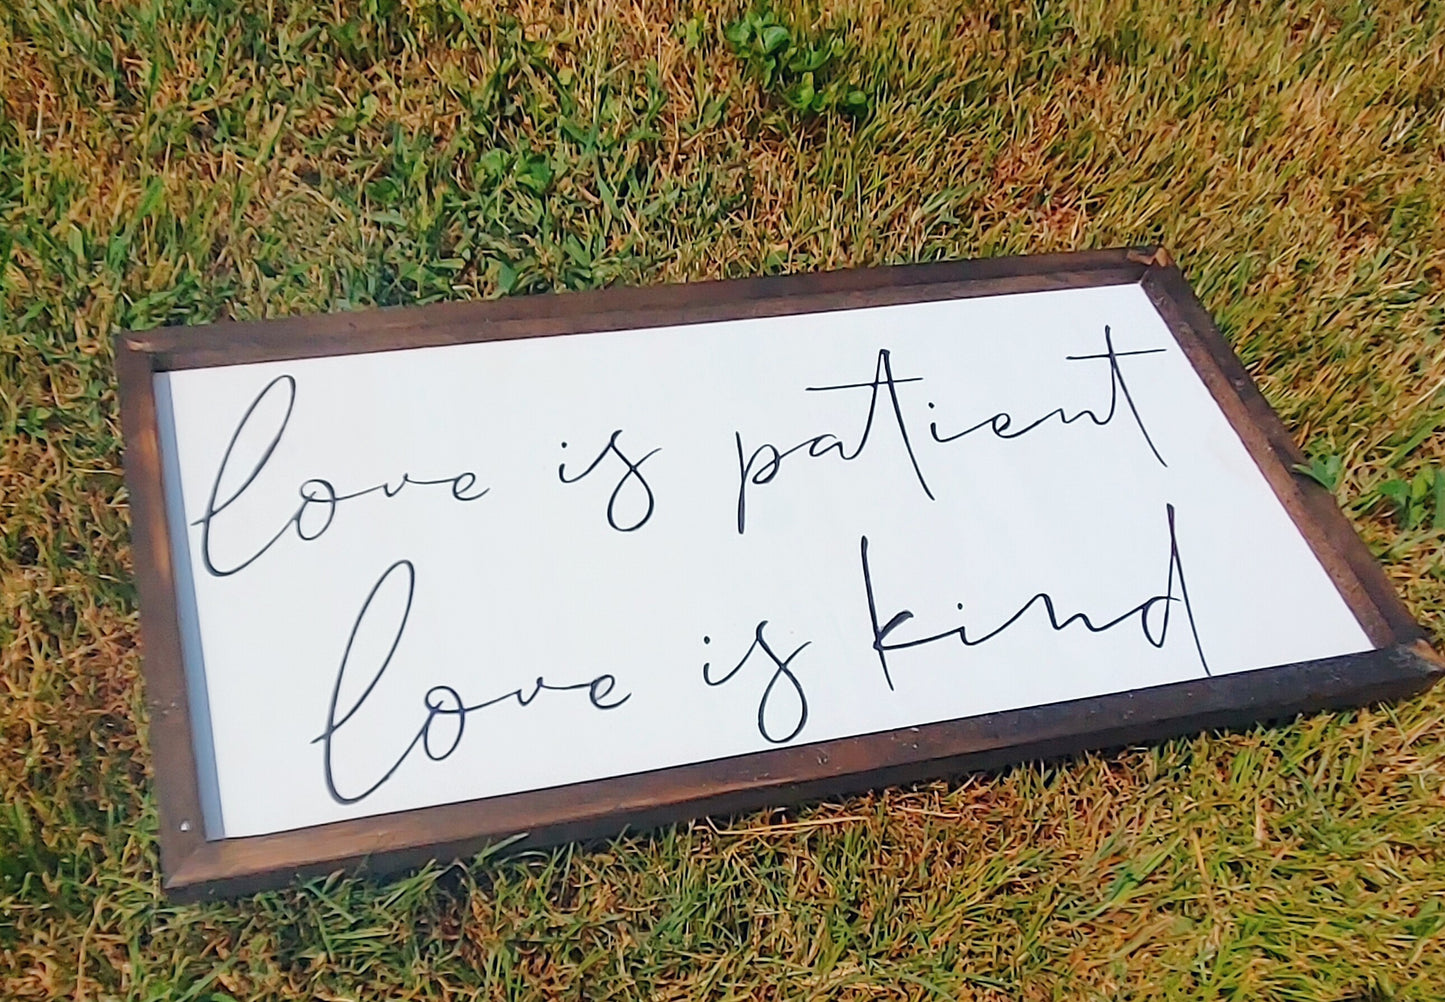 love is patient
love is kind